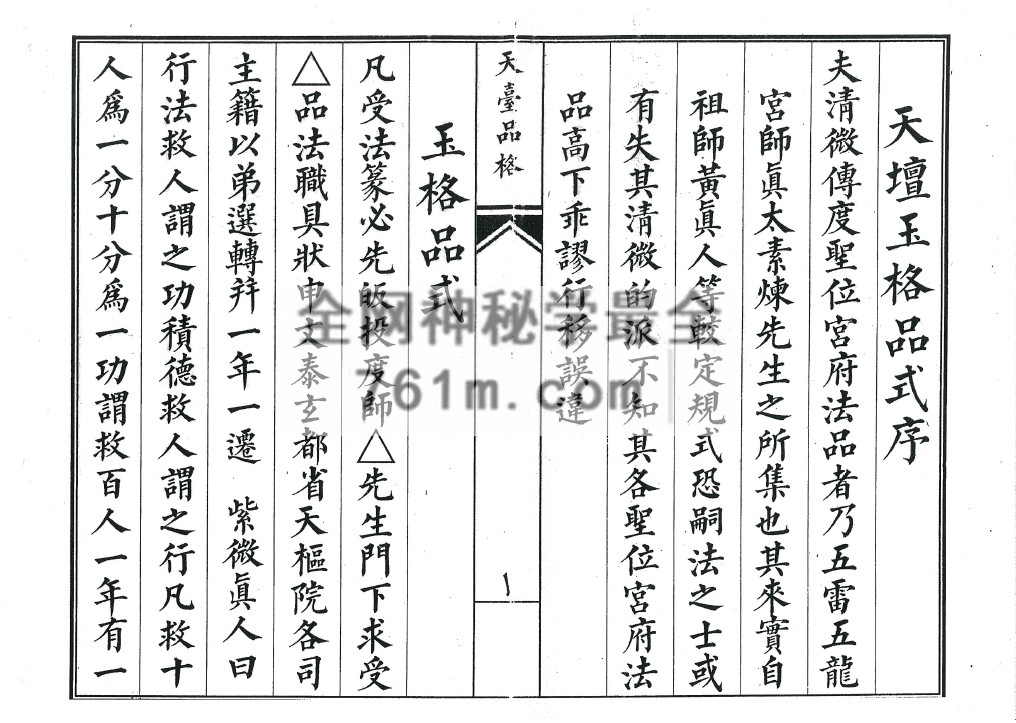 天壇玉格品式序
夫清微傳度聖位宮府法品者乃五雷五龍
宮師眞太素煉先生之所集也其來實自
祖師黃眞人等較定規式恐嗣法之士或
有失其清微的派不知其各聖位宮府法
品高下乖謬行移誤違
天臺品格
一
玉格品式
凡受法籙必先皈投度師△先生門下求受
△品法職具狀申文泰玄都省天樞院各司
主籍以弟選轉拜一年一遷 紫微眞人曰
行法救人謂之功積德救人謂之行凡救十
人爲一分十分爲一功謂救百人一年有一
全网神秘学最全
761m.com